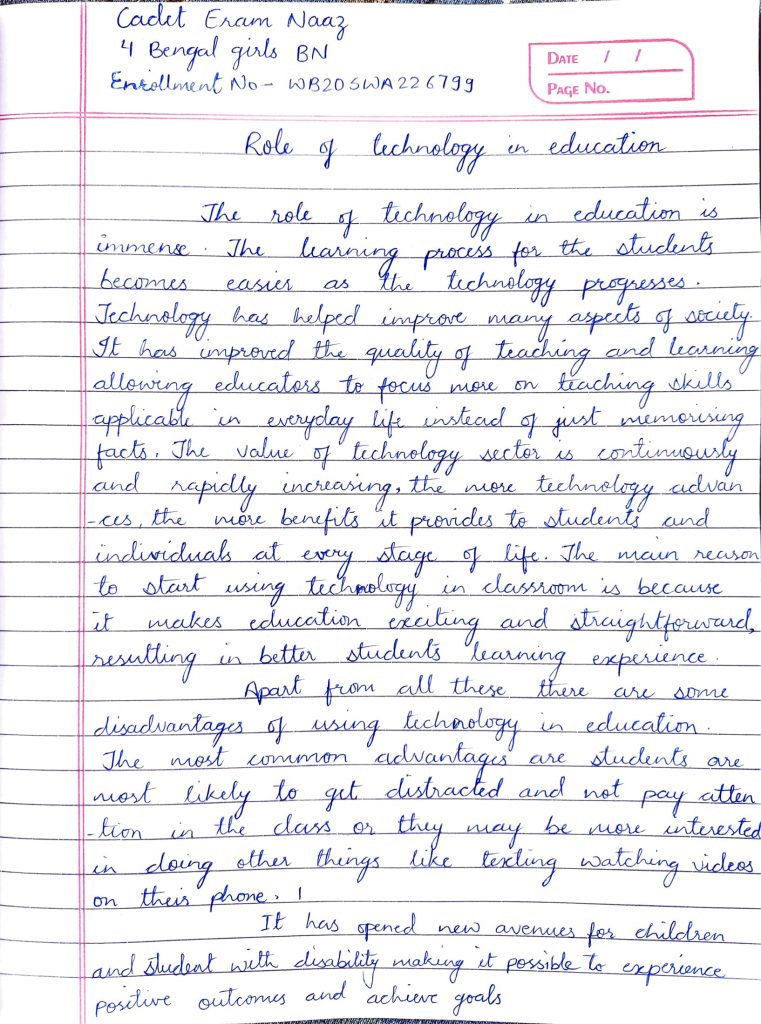 Cadet Eram Naaz
4 Bengal girls BN
Enrollment No - WB20SWA226799
DATE / /
PAGE No.
Role of technology in education
The role of technology in education is
immense. The learning process for the students
becomes easier as the technology progresses.
Technology has helped improve many aspects of society.
It has improved the quality of teaching and learning
allowing educators to focus more on teaching skills
applicable in everyday life instead of just memorising
facts. The value of technology sector is continuously
and rapidly increasing, the more technology advan
-ces, the more benefits it provides to students and
individuals at every stage of life. The main reason
to start using technology in classroom is because
it makes education exciting and straightforward,
resulting in better students learning experience.
Apart from all these there are some
disadvantages of using technology in education.
The most common advantages are students are
most likely to get distracted and not pay atten
-tion in the class or they may be more interested
in doing other things like texting watching videos
on their phone. 1
It has opened new avenues for children
and student with disability making it possible to experience
positive outcomes and achieve goals